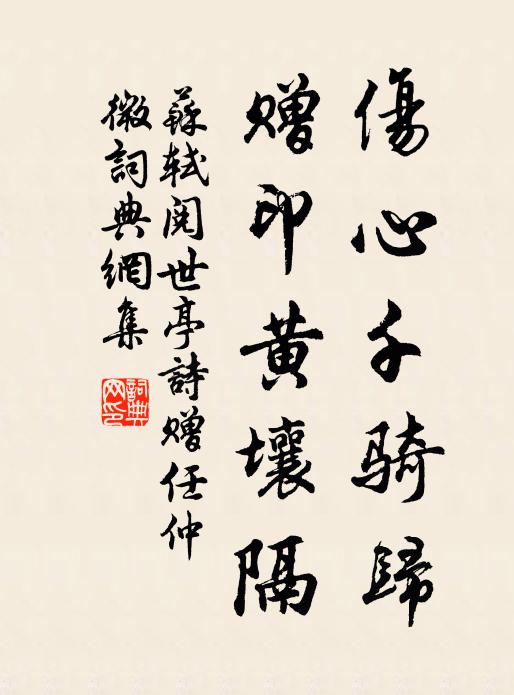 傷心千騎歸
贈印黃壤隔
蘇軾閱世亭詩贈任仲
微詞典網集
詞典
网印